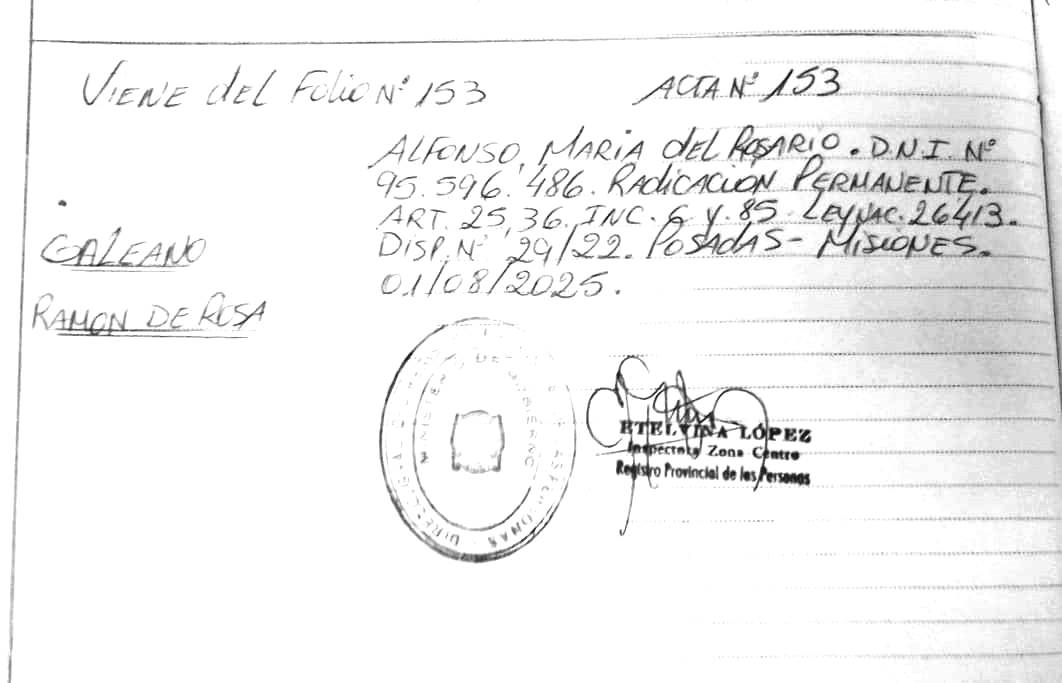 VIENE del Folio Nº 153
ACTA Nº 153
ALFONSO, MARIA del ROSARIO. D.N.I. Nº
95.596.486. RADICACION PERMANENTE.
ART. 25, 36. INC. G Y. 85 LEY NAC. 26413.
DISP. Nº 29/22. POSADAS - MISIONES.
01/08/2025.
GALEANO
RAMON DE ROSA
MINISTERIO DE GOBIERNO
ETELVINA LÓPEZ
Inspectora Zona Centro
Registro Provincial de las Personas